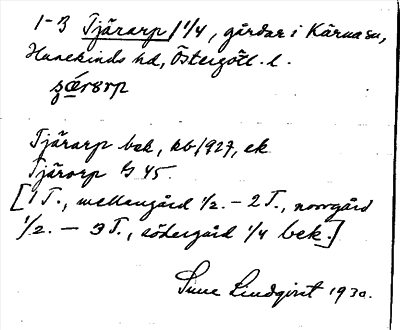 1-3 Tjärarp /1/4, gårdar i Kärna sn,
Hanekinds hd, Östergötl. l.
Tjärarp bek, kb 1927, ek
Tjärorp G 45.
[1 T., mellengård 1/2. – 2 T., norrgård
1/2. – 3 T., södergård 1/4 bek.]
Sune Lindqvist 1930.